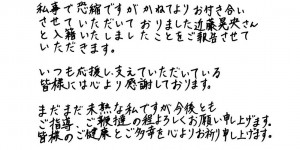 私事で恐縮ですが かねてよりお付き合い
させていただいて おりました近藤晃央さん
と入籍いたしました ことをご報告させて
いただきます。
いつも応援し支えていただいている
皆様には心より感謝しております。
まだまだ未熟な私ですが今後とも
ご指導、ご鞭撻の程よろしくお願い申し上げます。
皆様のご健康とご多幸を心よりお祈り申し上げます。